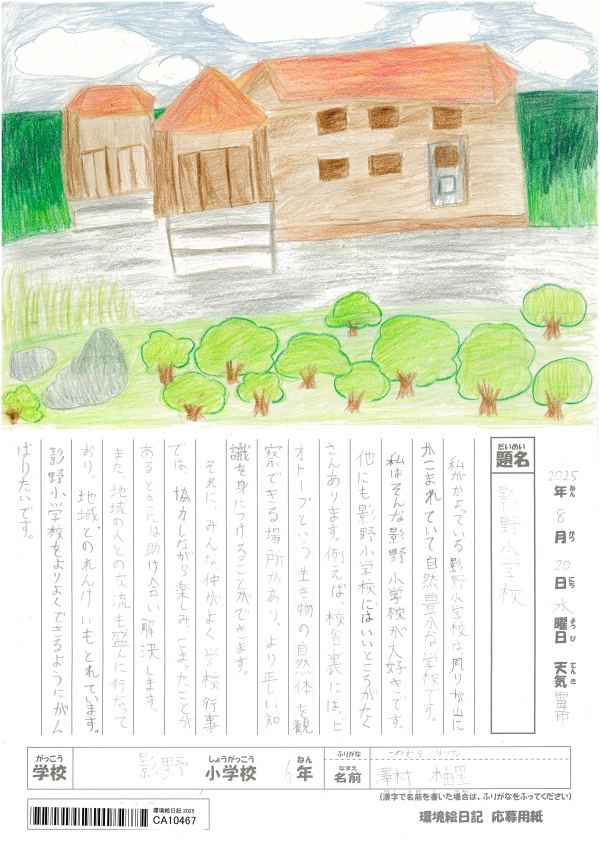 2025年8月20日水曜日 天気雷雨
ねん がつ にち ようび てんき
だいめい
題名 影野小学校
私がかよっている影野小学校は、周りが山に
かこまれていて自然豊かな学校です。
私はそんな影野小学校が大好きです。
他にも影野小学校にはいいところがたく
さんあります。例えば、校舎裏には、ビ
オトープという生き物の自然体を観
察できる場所があり、より正しい知
識を身につけることができます。
それに、みんな仲がよく学校行事
では、協力しながら楽しみ、こまったことが
あるときには助け合い解決します。
また、地域の人との交流も盛んに行なって
おり、地域とのれんけいもとれています。
影野小学校をよりよくできるようにがん
ばりたいです。
がっこう しょうがっこう ねん
学校 影野 小学校 6年
ふりがな さわむら ゆな
なまえ
名前 澤村 柚里
(漢字で名前を書いた場合は、ふりがなをふってください)
環境絵日記 2025
CA10467
環境絵日記 応募用紙